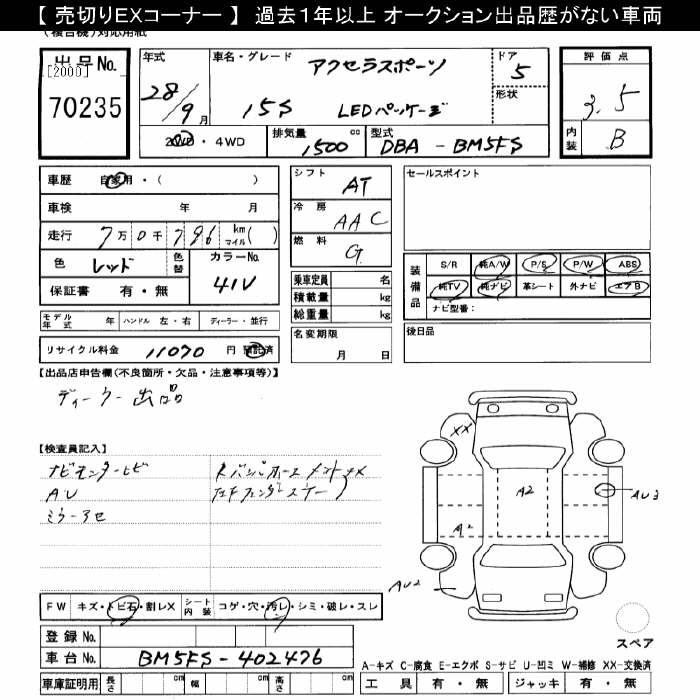 【 売切りEXコーナー 】 過去１年以上 オークション出品歴がない車両
(複合機)対応用紙
出品No.
[2000]
70235
年式
28/9月
車名・グレード
アクセラスポーツ
15S LEDパッケージ
ドア
5
形状
評価点
3.5
内装
B
2WD・4WD
排気量 1500 cc
型式 DBA - BM5FS
車歴 自家用・( )
車検 年 月
走行 7万0千796 km マイル( )
色 レッド 色替 カラーNo.
41V
保証書 有・無
モデル年式 年 ハンドル 左・右 ディーラー・並行
リサイクル料金 11070 円 預託済
シフト AT
冷房 AAC
燃料 G
乗車定員 名
積載量 kg
総重量 kg
名変期限
月 日
セールスポイント
装備品
S/R 純A/W P/S P/W ABS
純TV 純ナビ 革シート 外ナビ エアB
ナビ型番:
後日品
【出品店申告欄(不良箇所・欠品・注意事項等)】
ディーラー出品
【検査員記入】
AU
FW キズ・トビ石・割レX シート内装 コゲ・穴・汚レ・シミ・破レ・スレ
登録No.
車台No. BM5FS-402476
車庫証明用 長さ cm 幅 cm 高さ cm
XX
A2
AU3
A2
AU2
スペア
A-キズ C-腐食 E-エクボ S-サビ U-凹ミ W-補修 XX-交換済
工具 有・無 ジャッキ 有・無